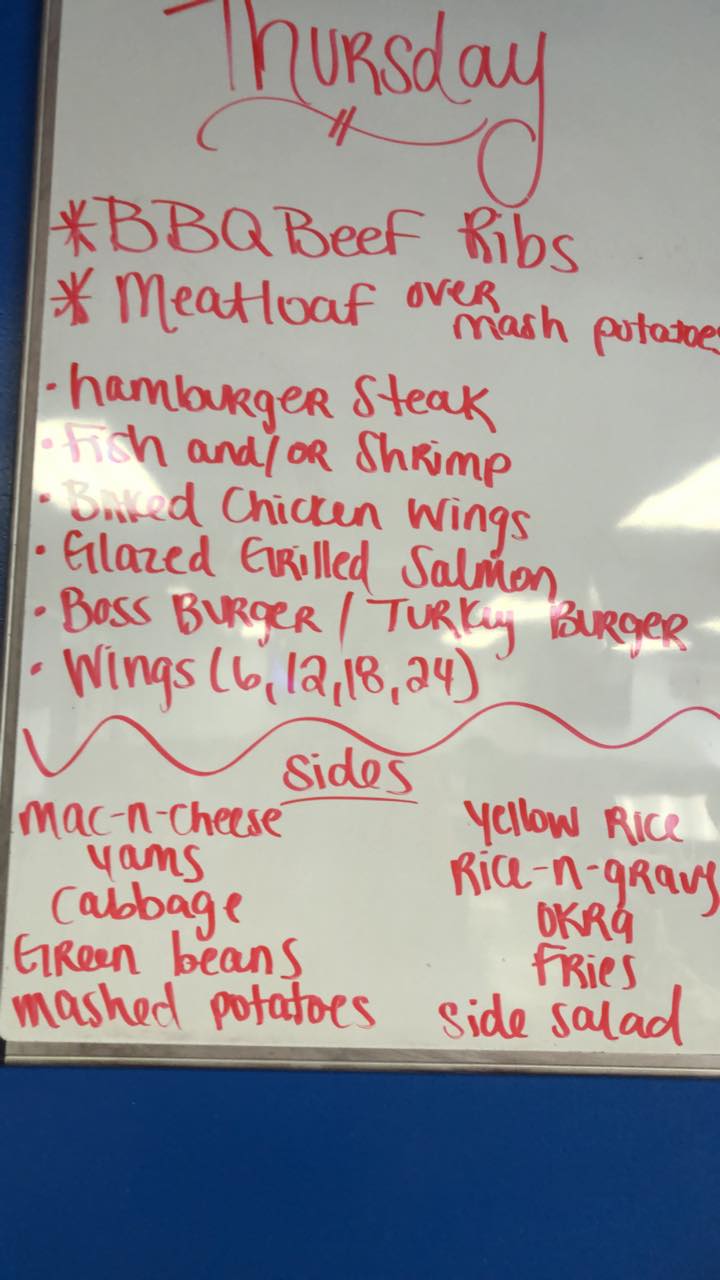 Thursday
*BBQ Beef Ribs
* Meatloaf over
mash potatoes
• hamburger Steak
• Fish and/or Shrimp
• Baked Chicken Wings
• Glazed Grilled Salmon
• Boss Burger / Turky Burger
• Wings (6, 12, 18, 24)
Sides
mac-n-cheese
yams
Cabbage
Green beans
mashed potatoes
Yellow Rice
Rice-n-gravy
OKRa
Fries
Side salad